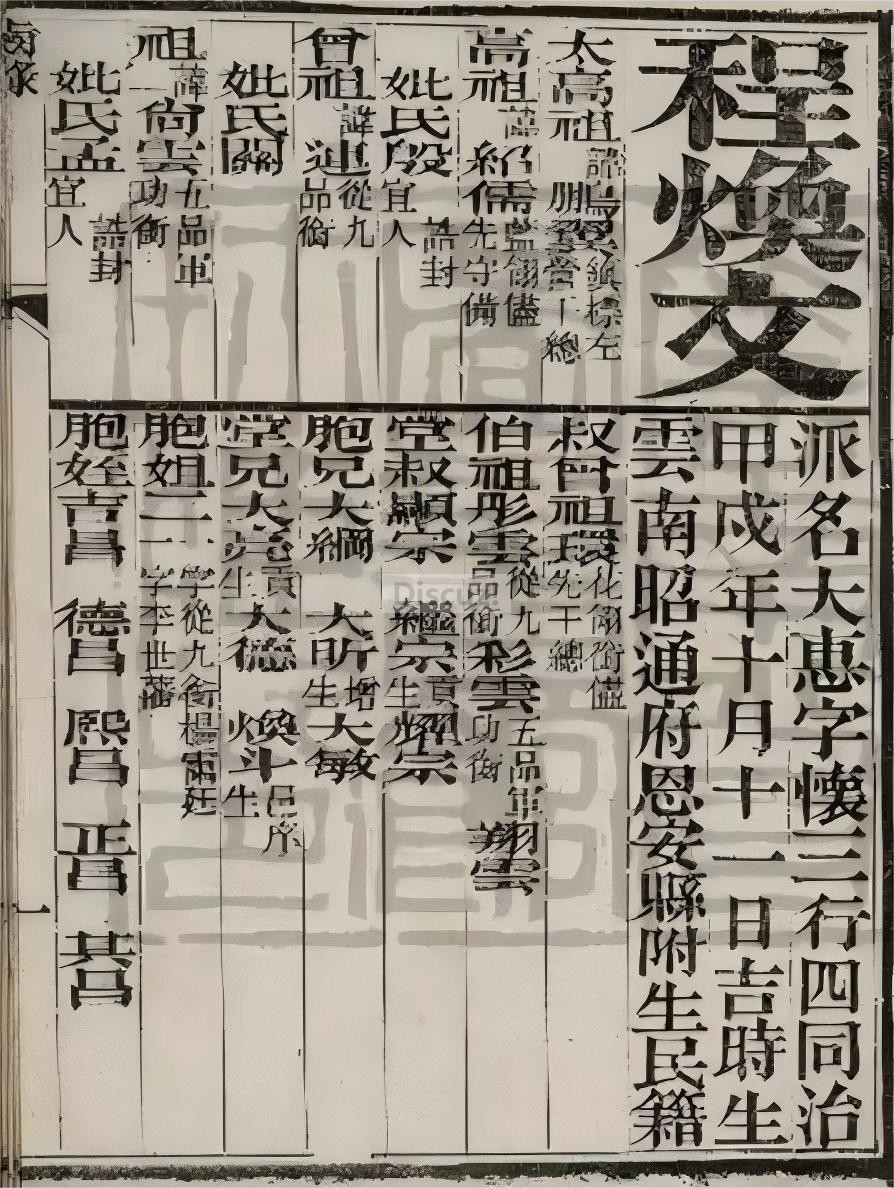 程煥文
派名大惠字懷三行四同治
甲戌年十月十一日吉時生
雲南昭通府恩安縣附生民籍
太高祖 諱鵬翼 鎮標左營千總
高祖 諱紹儒 藍翎儘先守備
妣氏段 誥封宜人
曾祖 諱連 從九品銜
妣氏關
祖 諱尚雲 五品軍功銜
妣氏孟 誥封宜人
叔曾祖環 花翎銜儘先千總
伯祖彤雲 從九品銜 彩雲 五品軍功銜 翔雲
堂叔顯宗 繼宗 貢生 耀宗
胞兄大綱 大昕 增生 大敏
堂兄大亮 貢生 大德 煥斗 邑庠生
胞姐二 一字從九銜楊 廷 一字李世藩
胞姪吉昌 德昌 熙昌 正昌 其昌
一